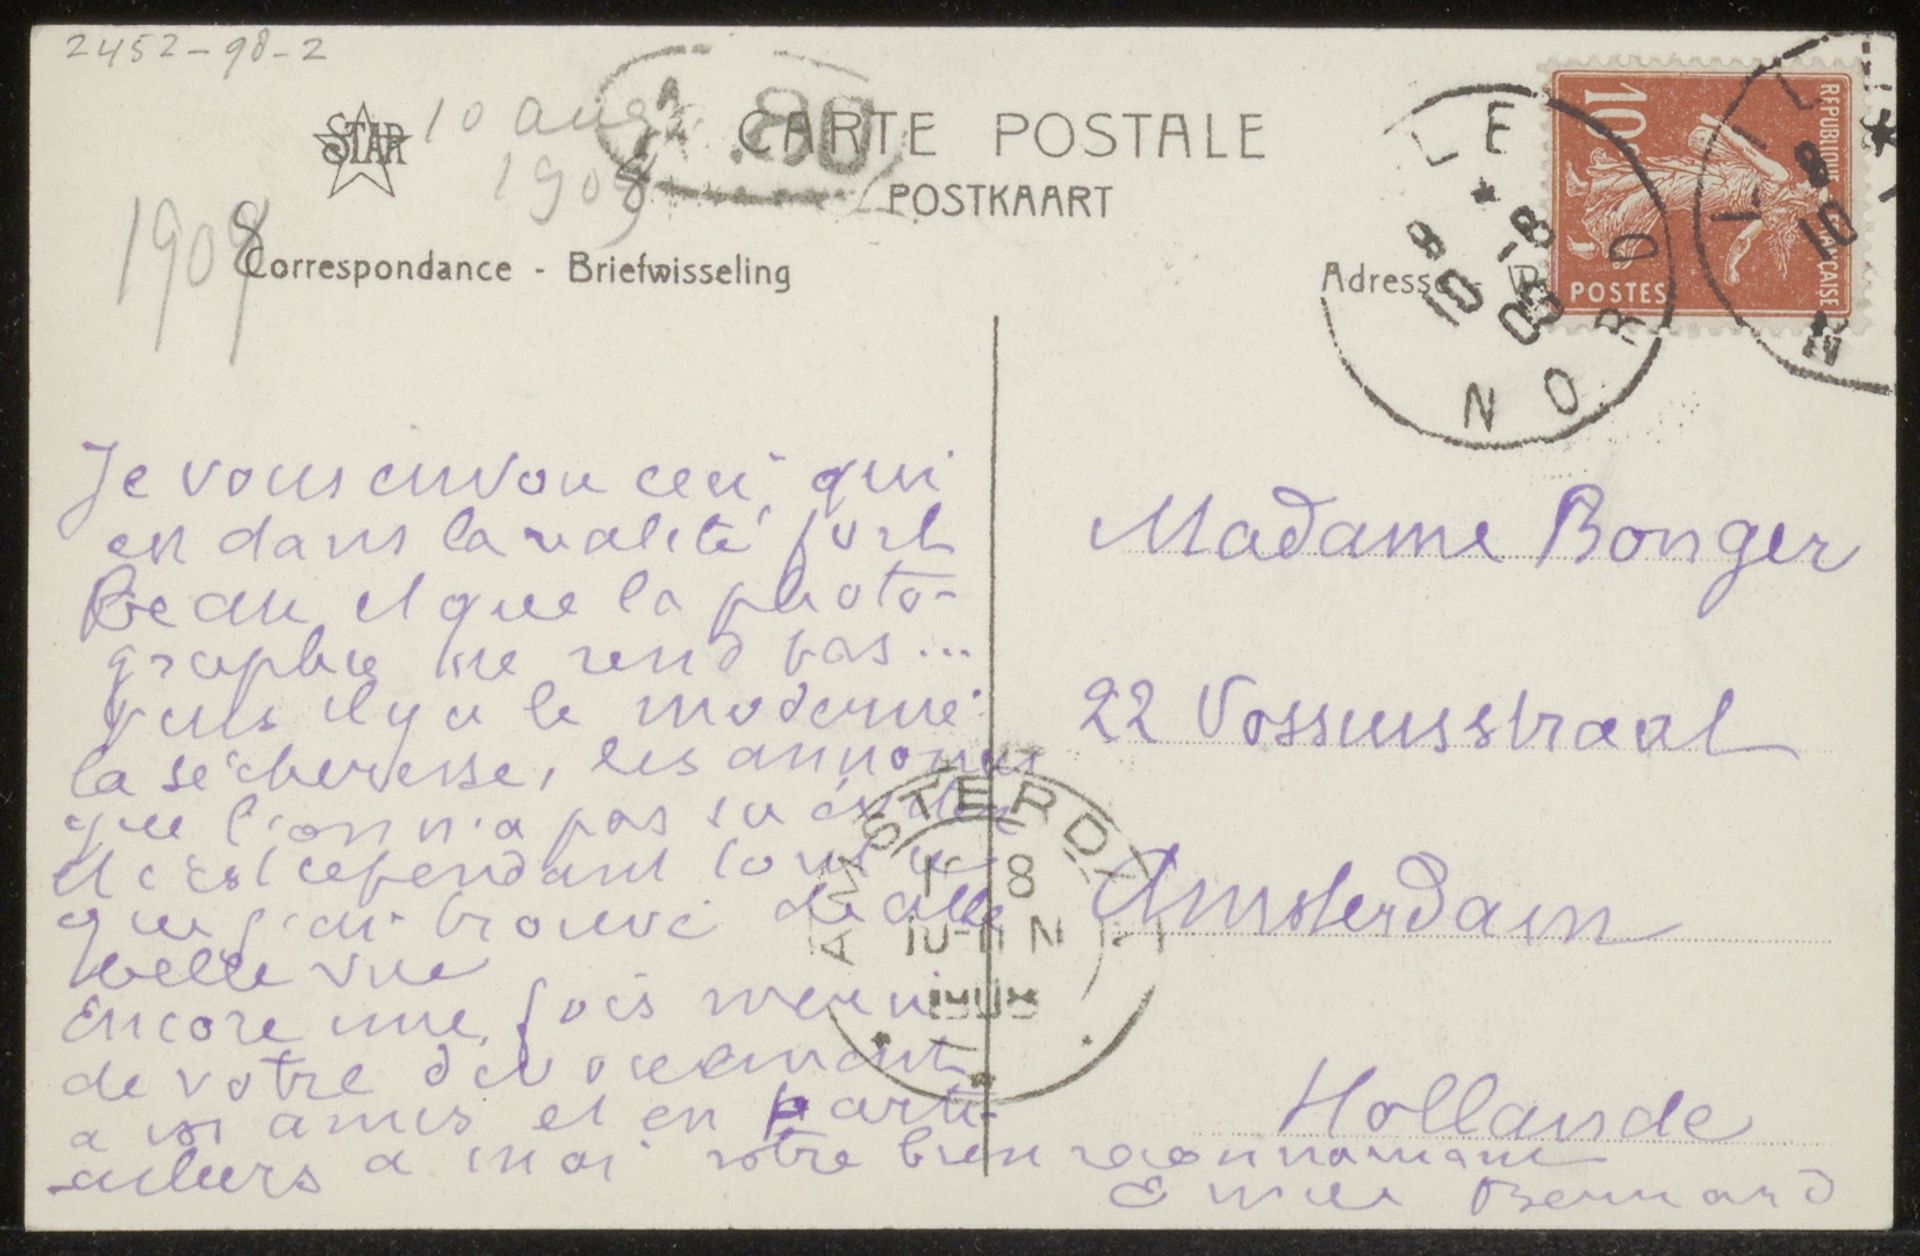 2452-98-2
STAR
10 aug
1908
1908
CARTE POSTALE
POSTKAART
Correspondance - Briefwisseling
Adresse
10c
REPUBLIQUE FRANÇAISE
POSTES
LILLE
NORD
10-8
08
AMSTERDAM
8
10-11 N
1908
Je vous envoie ceci, qui
est dans la réalité fort
Beau et que la photo-
graphie ne rend pas...
puis il y a le moderne
la sécheresse, les
que l'on n'a pas su éviter
et c'est cependant tout ce
que j'ai trouvé de
belle vue
Encore une fois merci
de votre dévouement
à vos amis et en parti-
culiers à moi votre bien reconnaissant
Emile Bernard
Madame Bonger
22 Vossiusstraat
Amsterdam
Hollande